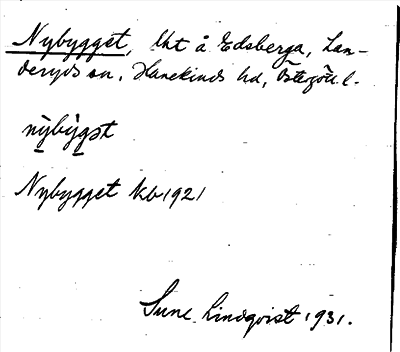 Nybygget, lht å Edsberga, Lan-
deryds sn, Hanekinds hd, Östergötl.
nỳbỳgst
Nybygget kb 1921
Sune Lindqvist 1931.